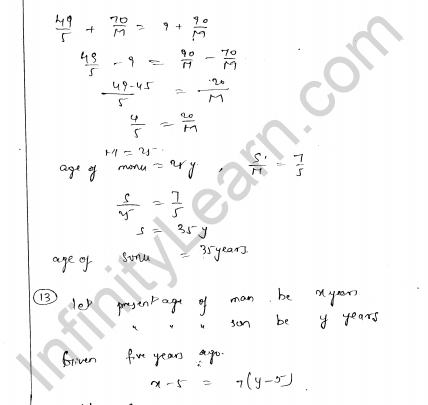 49/5 + 70/M = 9 + 90/M
49/5 - 9 = 90/M - 70/M
49-45/5 = 20/M
4/5 = 20/M
M = 25
age of monu = 25y , S/M = 7/5
S/25 = 7/5
S = 35y
age of sonu = 35 years
13 let present age of man be x years
" " " son be y years
Given five years ago.
x-5 = 7(y-5)
InfinityLearn.com